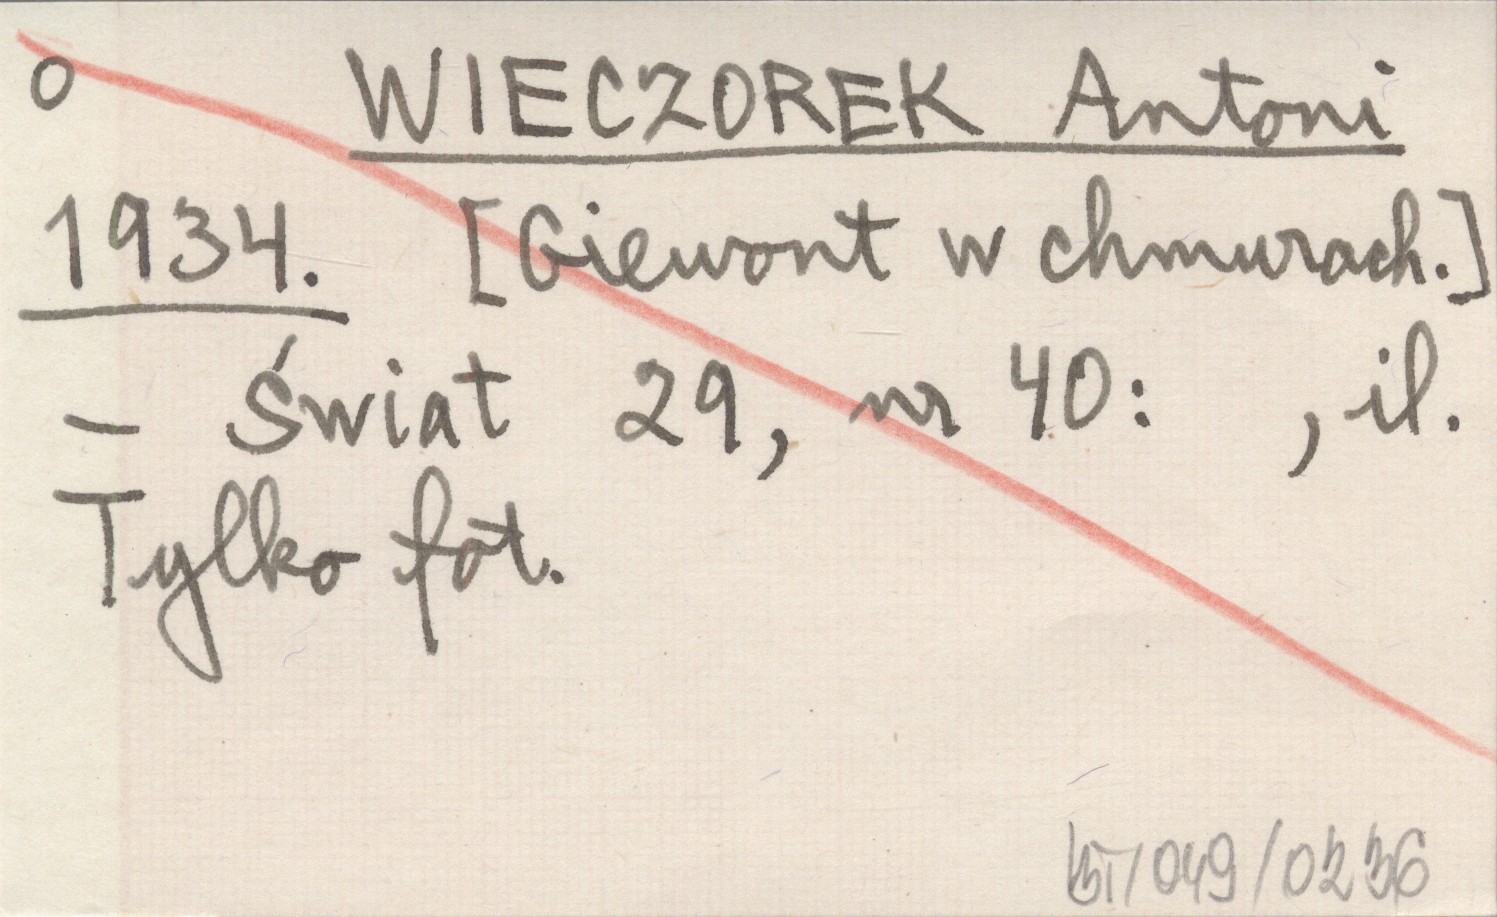 o WIECZOREK Antoni
1934. [Giewont w chmurach.]
– Świat 29, nr 40: , il.
Tylko fot.
/049/0236